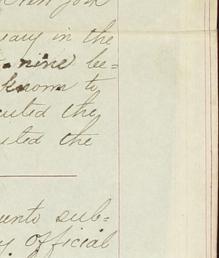 New York
in the
nine be=
known to
cuted the
uted the
unto sub=
official